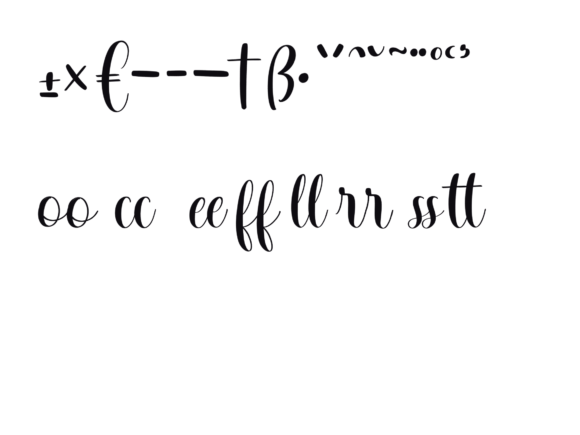 ±×€---†ß·`´^ˇ~¨°¸˛
oo cc eeffllrr sstt